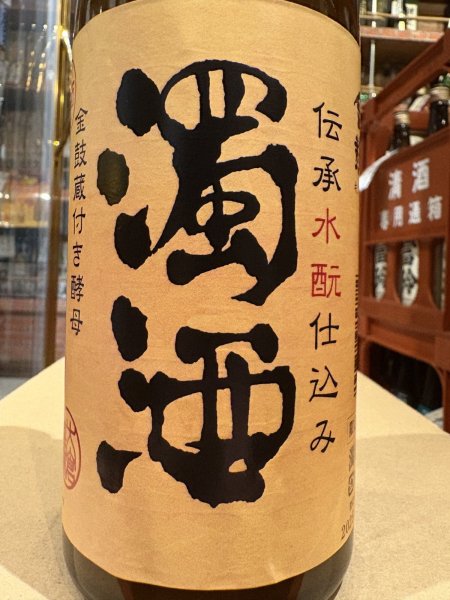 濁酒
伝承水酛仕込み
金鼓蔵付き酵母
清酒
専用通箱